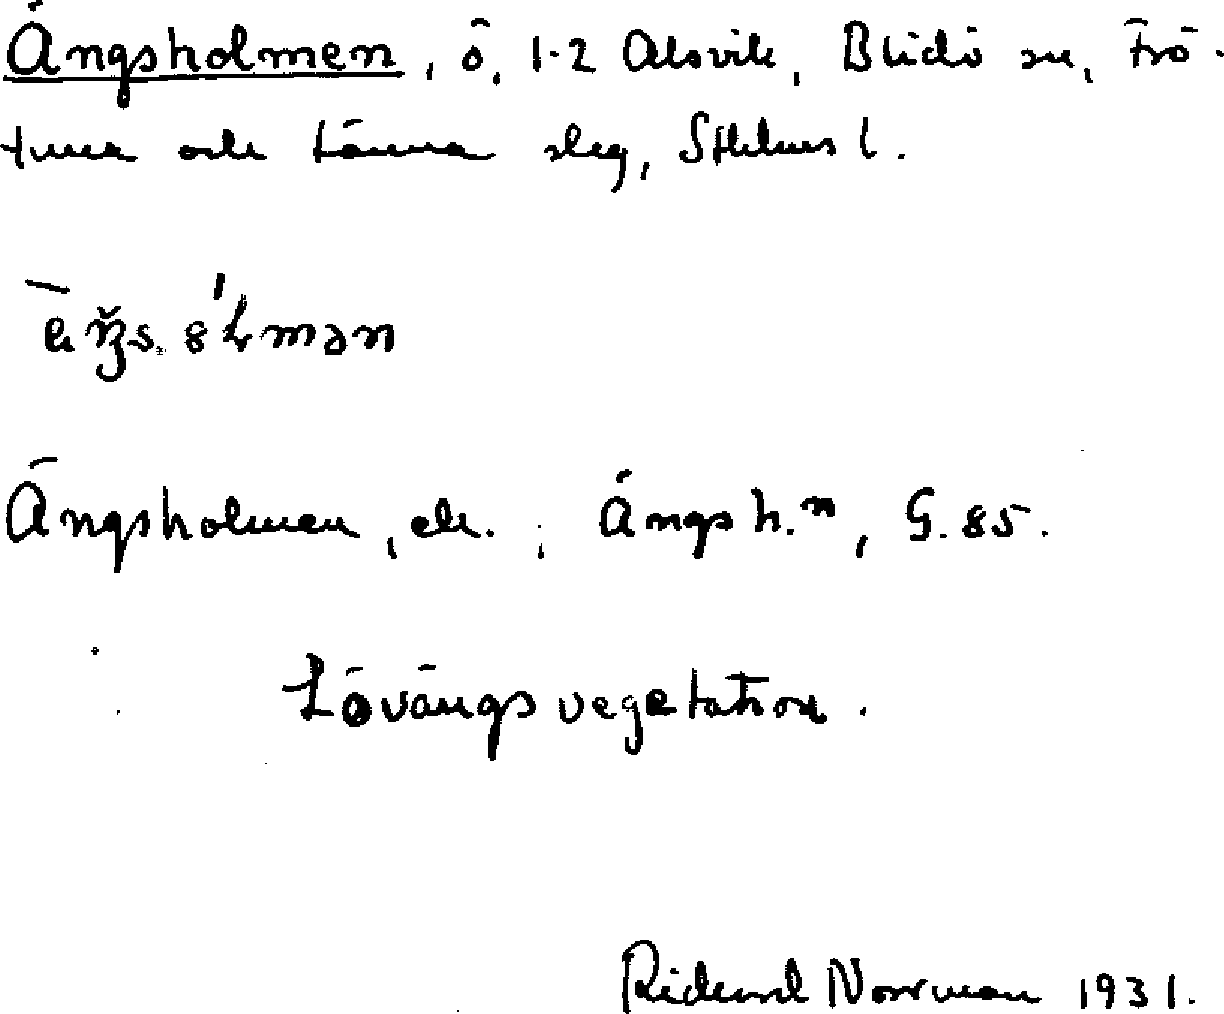 Ängsholmen, ö, 1-2 Alsvik, Blidö sn, Frö-
tuna och Länna slsg, Sthlms l.
Ängsholmen, ek. ; Ängsh.n, G. 85.
Lövängsvegetation.
Rickard Norrman 1931.